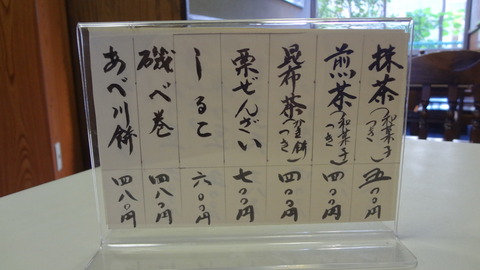 抹茶(和菓子つき) 五〇〇円
煎茶(和菓子つき) 四〇〇円
昆布茶(餅つき) 四〇〇円
栗ぜんざい 七〇〇円
しるこ 六〇〇円
磯べ巻 四八〇円
あべ川餅 四八〇円